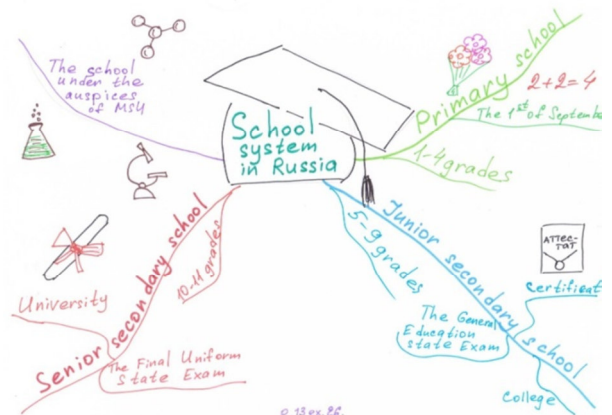 School
system
in Russia
The school
under the
auspices
of MSU
Primary school
2+2=4
The 1st of Septembe
1-4 grades
Junior secondary school
5-9 grades
ATTEC-
TAT
Certificat
The General
Education
state Exam
College
Senior secondary school
10-11 grades
University
The Final Uniform
state Exam